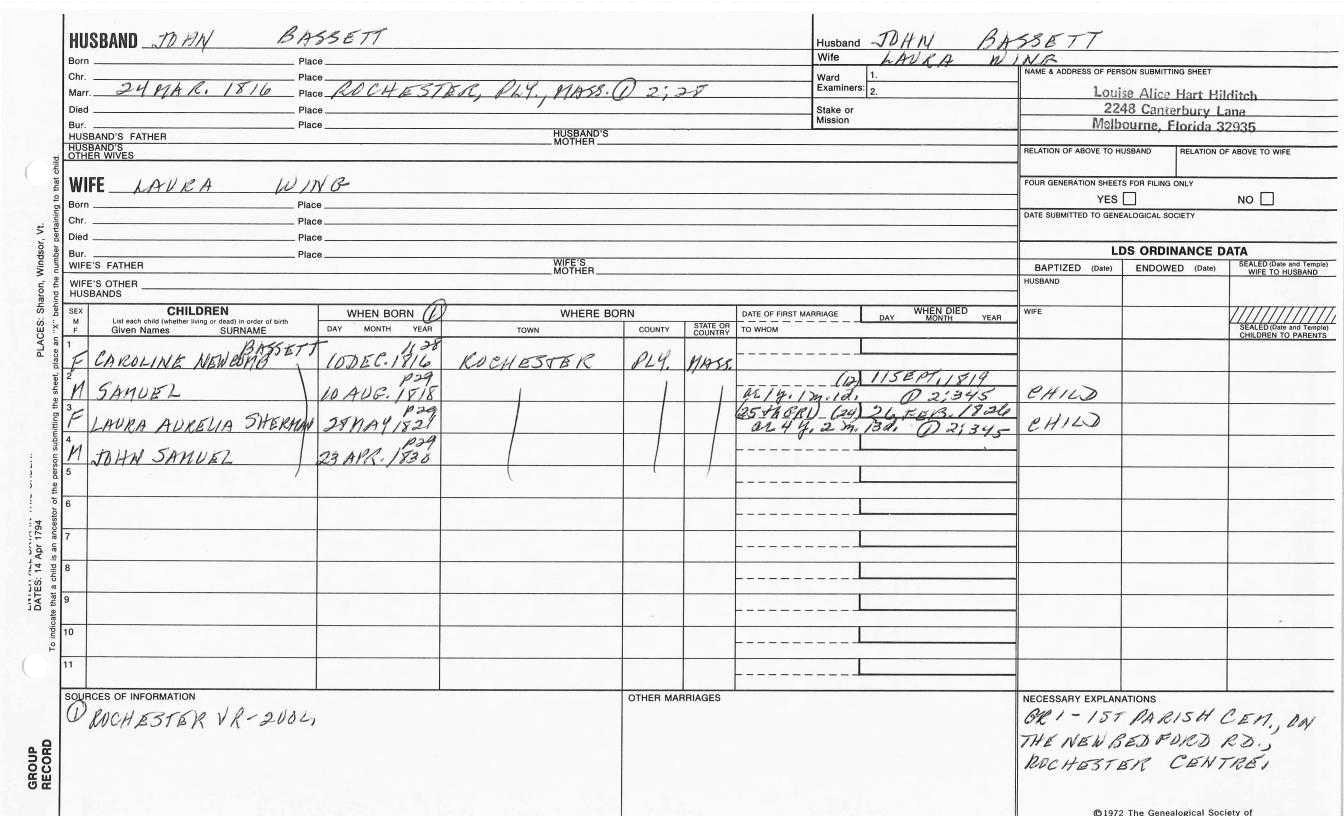 HUSBAND JOHN BASSETT
Born Place
Chr. Place
Marr. 24 MAR. 1816 Place ROCHESTER, PLY., MASS. ① 2:28
Died Place
Bur. Place
HUSBAND'S FATHER HUSBAND'S MOTHER
HUSBAND'S OTHER WIVES
Husband JOHN BASSETT
Wife LAURA WING
Ward Examiners: 1.
2.
Stake or Mission
NAME & ADDRESS OF PERSON SUBMITTING SHEET
Louise Alice Hart Hilditch
2248 Canterbury Lane
Melbourne, Florida 32935
RELATION OF ABOVE TO HUSBAND RELATION OF ABOVE TO WIFE
FOUR GENERATION SHEETS FOR FILING ONLY
YES NO
DATE SUBMITTED TO GENEALOGICAL SOCIETY
WIFE LAURA WING
Born Place
Chr. Place
Died Place
Bur. Place
WIFE'S FATHER WIFE'S MOTHER
WIFE'S OTHER HUSBANDS
LDS ORDINANCE DATA
BAPTIZED (Date) ENDOWED (Date) SEALED (Date and Temple) WIFE TO HUSBAND
HUSBAND
WIFE
SEALED (Date and Temple) CHILDREN TO PARENTS
SEX M F CHILDREN WHEN BORN ① WHERE BORN DATE OF FIRST MARRIAGE WHEN DIED
List each child (whether living or dead) in order of birth
Given Names SURNAME DAY MONTH YEAR TOWN COUNTY STATE OR COUNTRY TO WHOM DAY MONTH YEAR
1 F CAROLINE NEWCOMB BASSETT 10 DEC. 1816 1:28 ROCHESTER PLY. MASS.
2 M SAMUEL 10 AUG. 1818 P29 (12) 11 SEPT. 1819 CHILD
ae 1 y. 1 m. 1 d. ① 2:345
3 F LAURA AURELIA SHERMAN 28 MAY 1821 P29 (25th GR1) (24) 26 FEB. 1826 CHILD
ae 4 y. 2 m. 13 d. ① 2:345
4 M JOHN SAMUEL 23 APR. 1830 P29
5
6
7
8
9
10
11
SOURCES OF INFORMATION
① ROCHESTER VR-2VOL.
OTHER MARRIAGES
NECESSARY EXPLANATIONS
GR1 - 1ST PARISH CEM., ON
THE NEW BEDFORD RD.,
ROCHESTER CENTRE.
©1972 The Genealogical Society of
PLACES: Sharon, Windsor, Vt.
DATES: 14 Apr 1794
To indicate that a child is an ancestor of the person submitting the sheet, place an "X" behind the number pertaining to that child.
GROUP RECORD